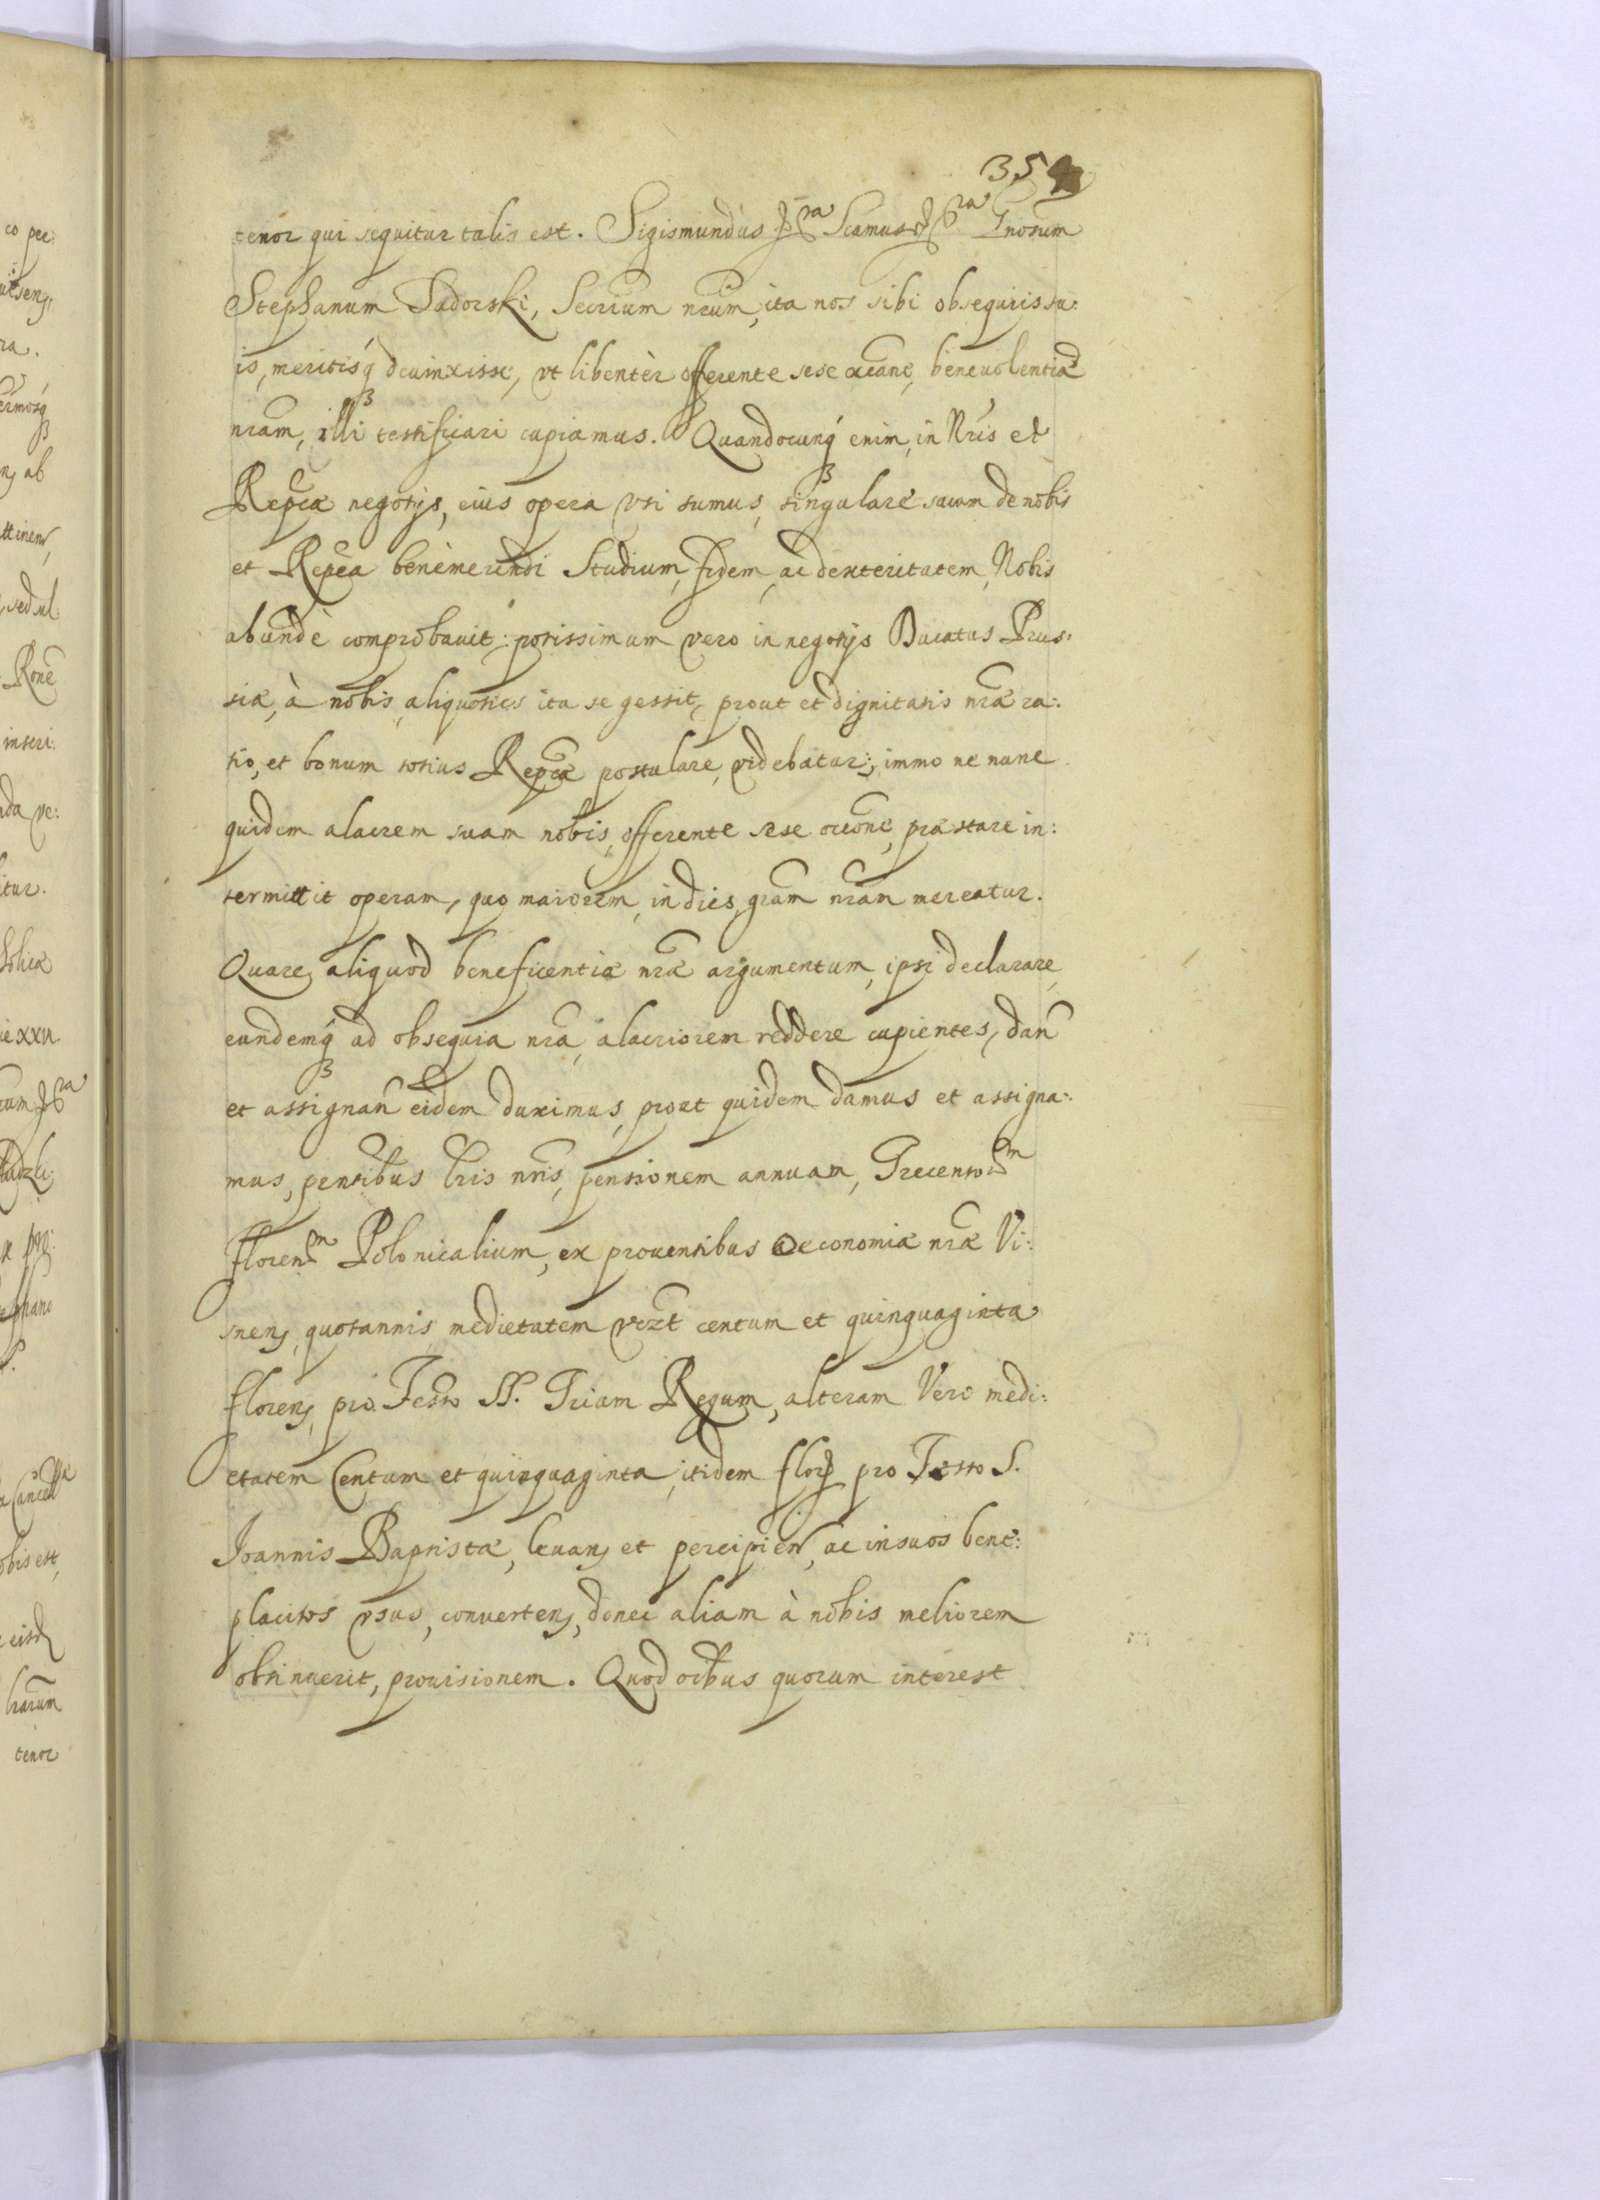 35
tenor qui sequitur talis est. Sigismundus &cra Scamus &cra Gnosum
Stephanum Sadorski, Secrium nrum, ita nos sibi obsequiis su:
is, meritisq deuinxisse, vt libentèr offerente sese occane, beneuolentia
nram, illi testificari cupiamus. Quandocunq enim, in Nris et
Reipcæ negotijs, eius opera vsi sumus, singulare suum de nobis
et Repca benèmerendi Studium, fidem, ac dexteritatem, Nobis
abundè comprobauit: potissimum vero in negotijs Ducatus Prus:
siæ, à nobis, aliquoties ita se gessit, prout et dignitatis nræ ra:
tio, et bonum totius Reipcæ postulare, videbatur; immo ne nunc
quidem alacrem suam nobis, offerente sese occone, præstare in:
termittit operam, quo maiorem, in dies, gram nram mereatur.
Quare, aliquod beneficentiæ nræ argumentum, ipsi declarare,
eundemq ad obsequia nra, alacriorem reddere cupientes, dan
et assignan eidem duximus, prout quidem damus et assigna:
mus, pentibus lris nris, pensionem annuam, Trecentorm
florenorm Polonicalium, ex prouentibus Oeconomiæ nræ Vi:
snen, quotannis, medietatem vizt centum et quinquaginta
floren, pro Festo SS. Trium Regum, alteram Vero medi:
etatem Centum et quinquaginta, itidem flor pro Festo S.
Joannis Baptistæ, leuan, et percipien, ac in suos bene:
placitos vsus, conuerten, donec aliam à nobis meliorem
obtinuerit, prouisionem. Quod oibus quorum interest